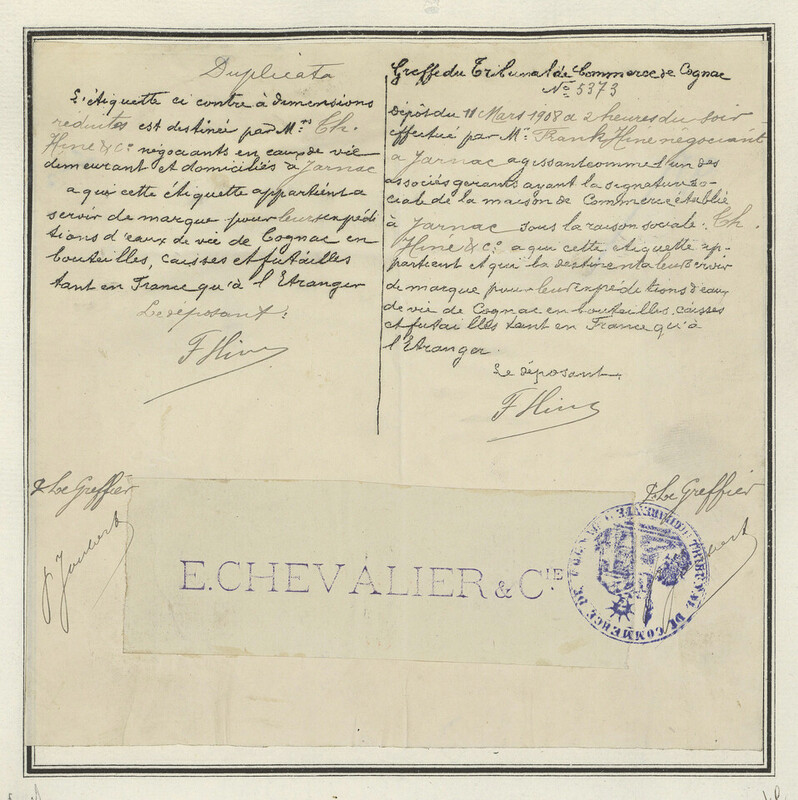 Duplicata
L'étiquette ci contre à dimensions
réduites est destinée par M.rs Ch.
Hine & Co négociants en eaux de vie
demeurant et domiciliés à Jarnac
a qui cette étiquette appartient a
servir de marque pour leurs expédi
tions d'eaux de vie de Cognac en
bouteilles, caisses et futailles
tant en France qu'à l'Etranger
Le déposant:
F Hine
Greffe du Tribunal de Commerce de Cognac
No 5373
Dépôt du 11 Mars 1908 a 2 heures du soir
effectué par Mr. Frank Hine négociant
a Jarnac agissant comme l'un des
associés gerants ayant la signature so-
ciale de la maison de Commerce établie
à Jarnac sous la raison sociale: Ch.
Hine & Co a qui cette etiquette ap-
partient et qui la destinent a leur servir
de marque pour leur expéditions d'eaux
de vie de Cognac en bouteilles, caisses
et futailles tant en France qu'à
l'Etranger.
Le déposant.
F Hine
Le Greffier
Joubert
Le Greffier
E. CHEVALIER & CIE
TRIBUNAL DE COMMERCE DE COGNAC